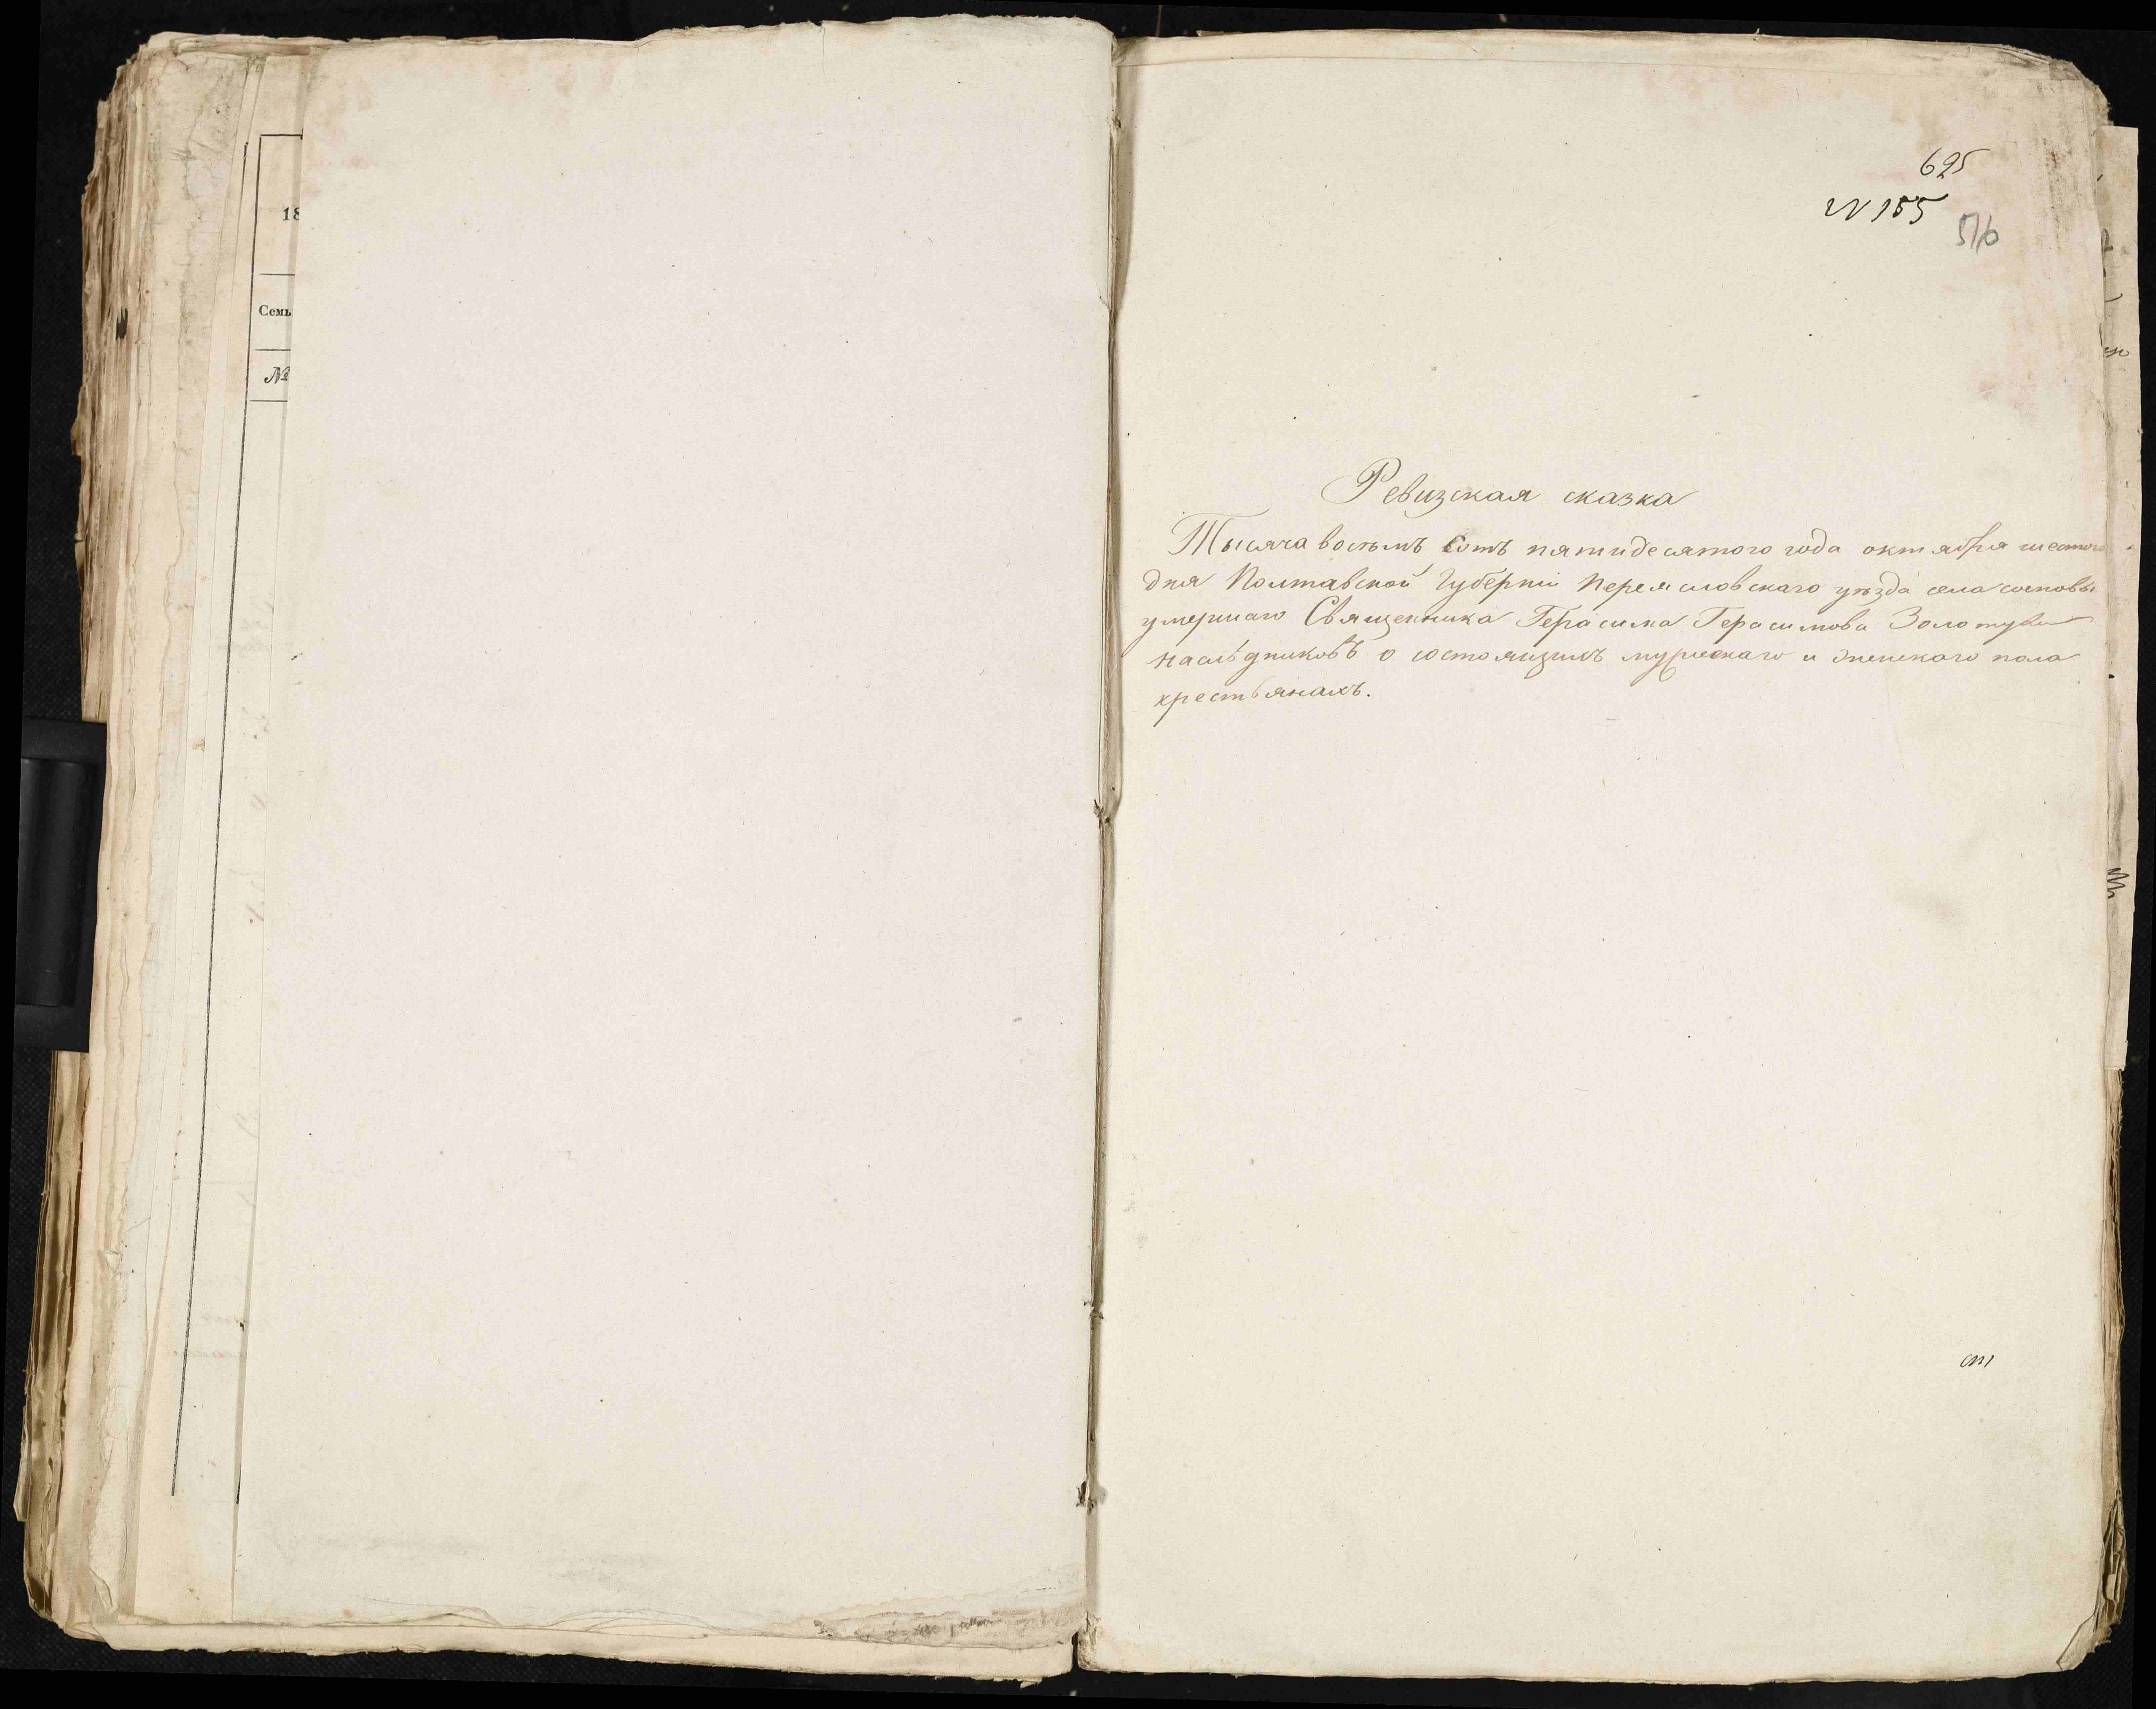 18
Семь
№
695
N 155
516
Ревизская сказка
Тысяча восемъ сотъ пятидесятого года октября шестого
дня Полтавской Губерніи Переяславскаго уѣзда села
умершаго Священника Герасима Герасимова
наслѣдниковъ о состоящихъ мужескаго и женскаго пола
крестьянахъ.